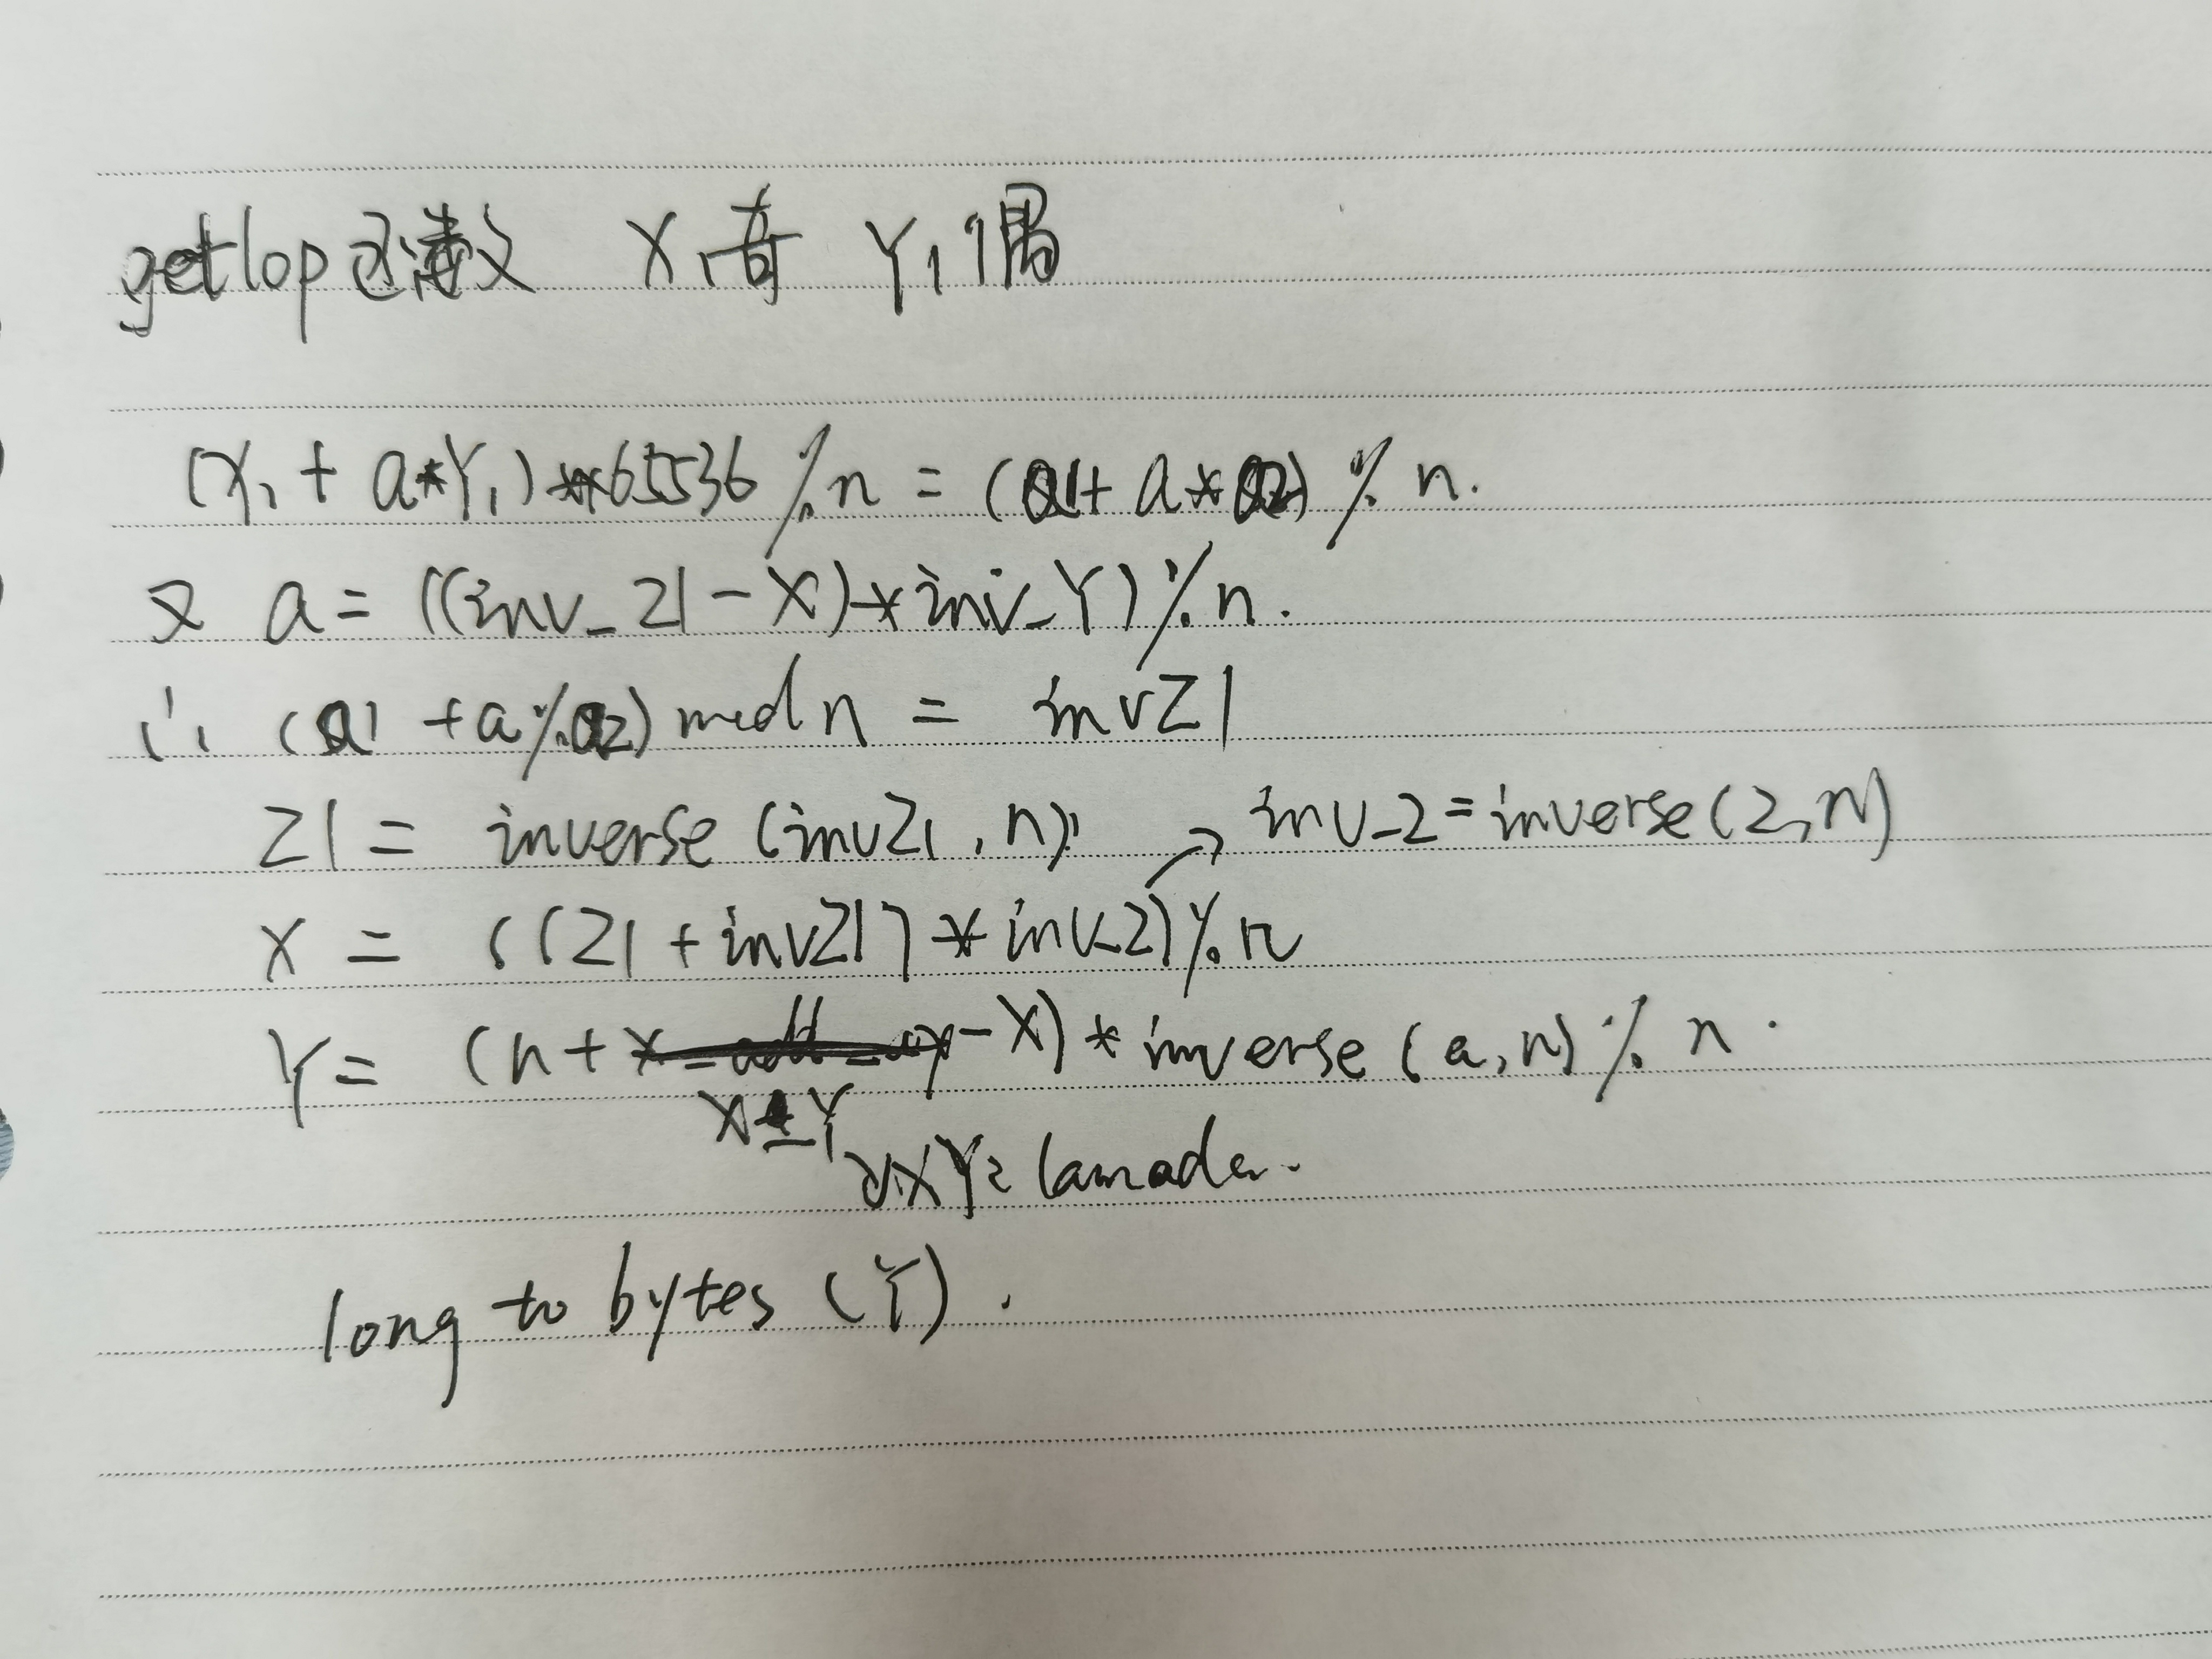 getlop函数 X₁奇 Y₁偶
(X₁ + a*Y₁)**65536 % n = (Q1 + a*Q2) % n.
又 a = ((inv_Z1 - X) * inv_Y) % n.
∴ (Q1 + a%Q2) mod n = invZ1
Z1 = inverse (invZ1, n): → inv_2 = inverse(2, n)
X = ((Z1 + invZ1) * inv_2) % n
Y = (n + - X) * inverse (a, n) % n.
X±Y
lamada.
long to bytes (Y).